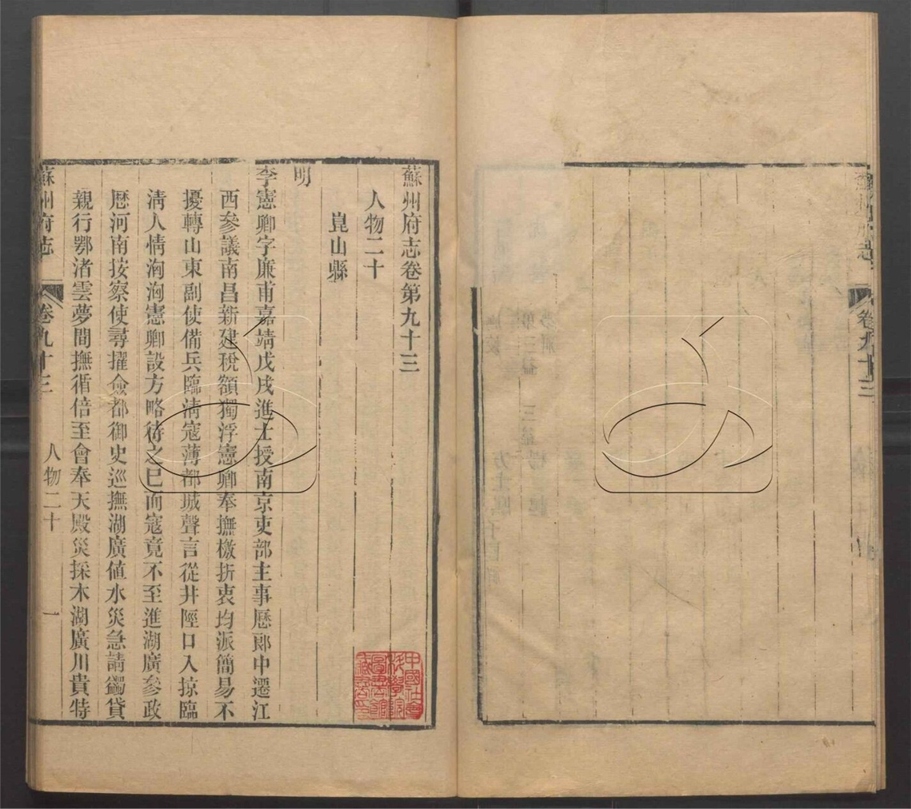 卷九十三
蘇州府志卷第九十三
人物二十
崑山縣
明
李憲卿字廉甫嘉靖戊戌進士授南京吏部主事歷郎中遷江
西參議南昌新建稅額獨浮憲卿奉撫檄折衷均派簡易不
擾轉山東副使備兵臨清寇薄都城聲言從井陘口入掠臨
清人情洶洶憲卿設方略待之已而寇竟不至進湖廣參政
歷河南按察使尋擢僉都御史巡撫湖廣值水災急請蠲貸
親行鄂渚雲夢間撫循倍至會奉天殿災採木湖廣川貴特
蘇州府志 卷九十三 人物二十 一